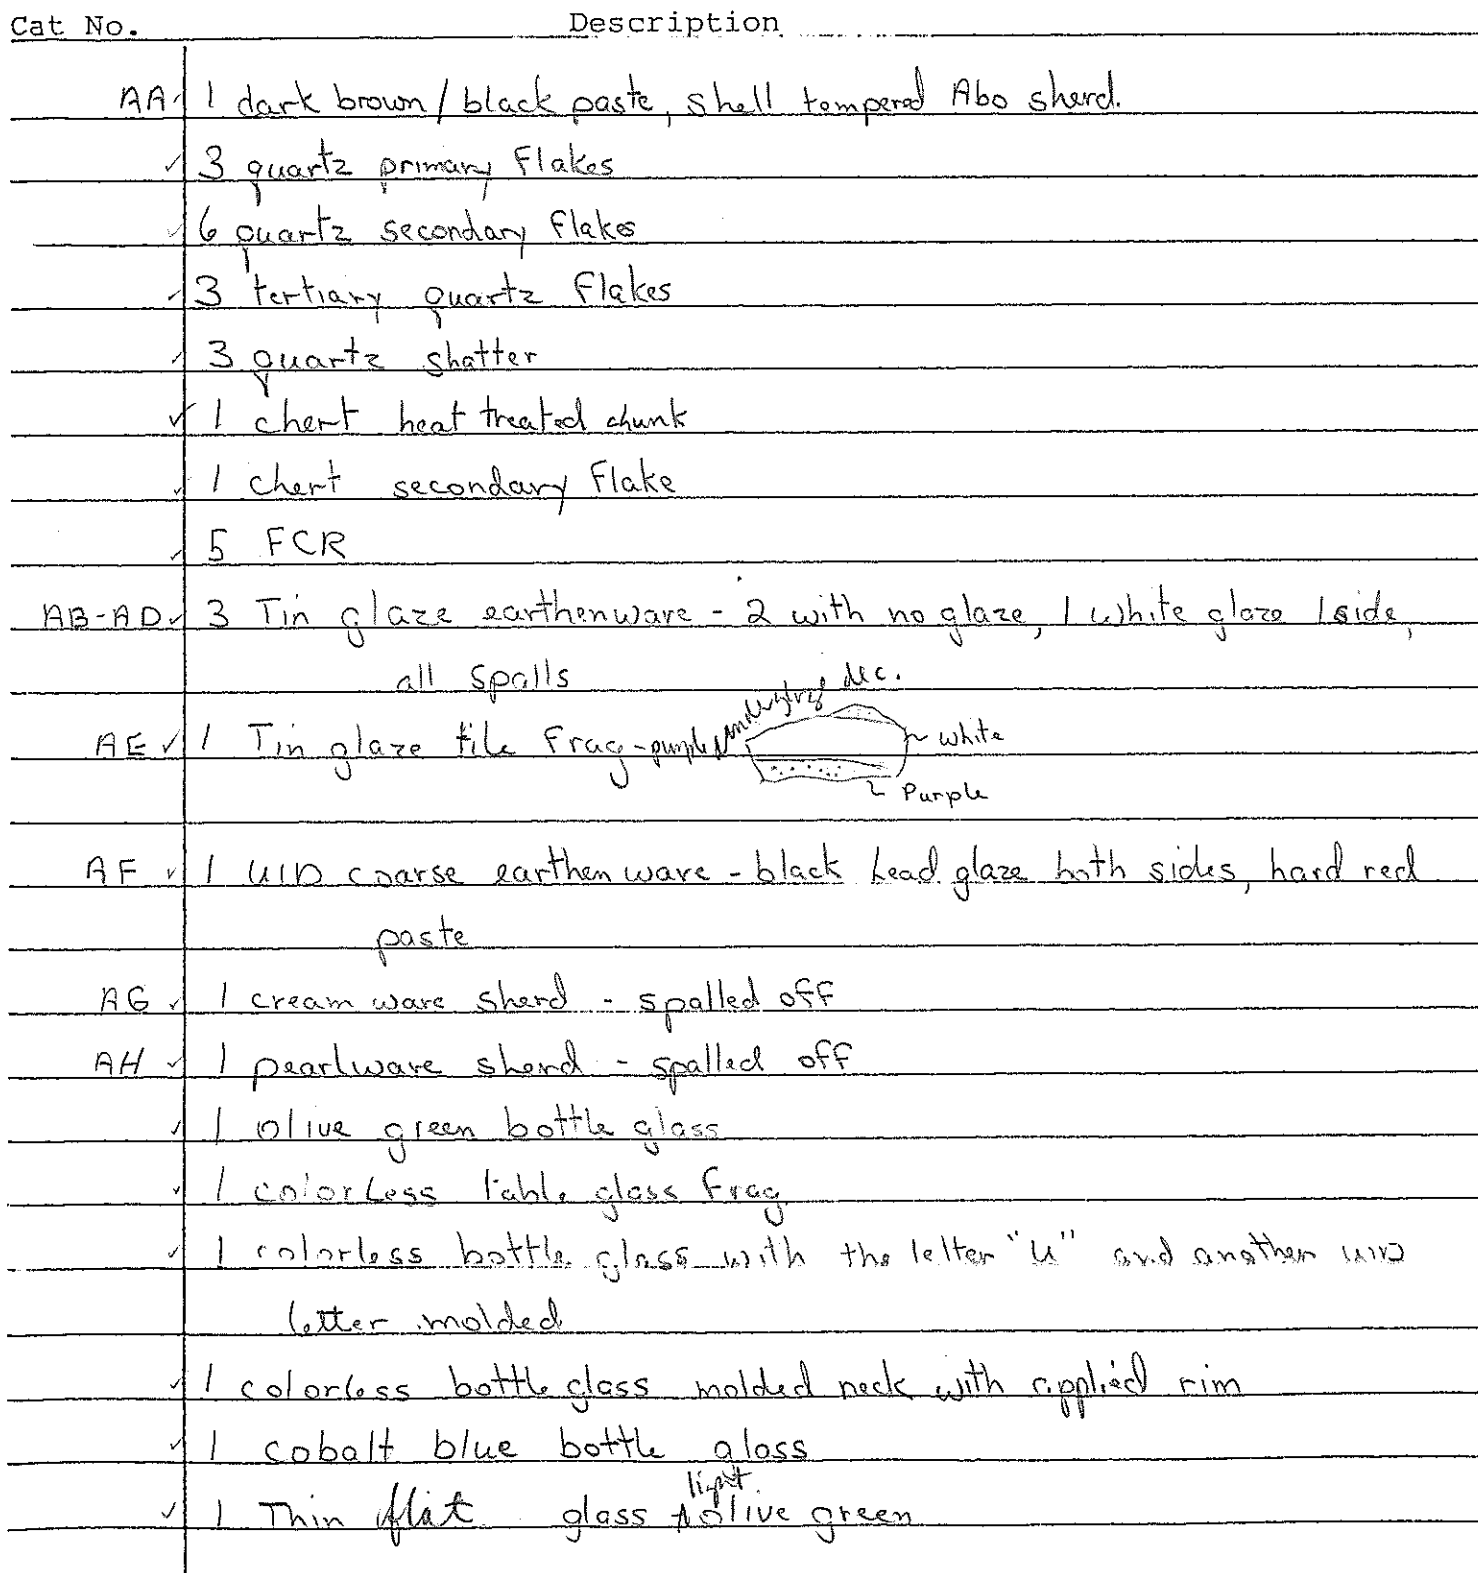 Cat No. Description
AA 1 dark brown/black paste, shell tempered Abo sherd.
✓ 3 quartz primary flakes
✓ 6 quartz secondary flakes
✓ 3 tertiary quartz flakes
✓ 3 quartz shatter
✓ 1 chert heat treated chunk
✓ 1 chert secondary flake
✓ 5 FCR
AB-AD ✓ 3 Tin glaze earthenware - 2 with no glaze, 1 white glaze 1 side,
all spalls
AE ✓ 1 Tin glaze tile frag - purple dec.
white
Purple
AF ✓ 1 UID coarse earthenware - black lead glaze both sides, hard red
paste
AG ✓ 1 creamware sherd - spalled off
AH ✓ 1 pearlware sherd - spalled off
✓ 1 olive green bottle glass
✓ 1 colorless table glass frag
✓ 1 colorless bottle glass with the letter "U" and another UID
letter molded
✓ 1 colorless bottle glass molded neck with applied rim
✓ 1 cobalt blue bottle glass
✓ 1 Thin flat glass light olive green